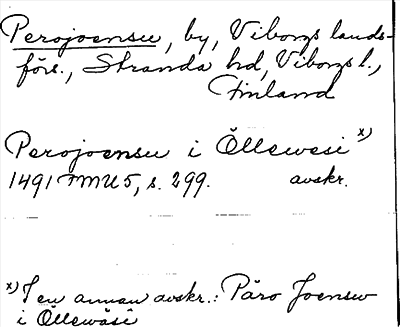 Perojoensu, by, Viborgs lands-
förs., Stranda hd, Viborgs l.,
Finland
Perojoensu i Öllewesi x)
1491 FMU 5, s. 299. avskr.
x) I en annan avskr.: Päro Joensw
i Öllewäsi